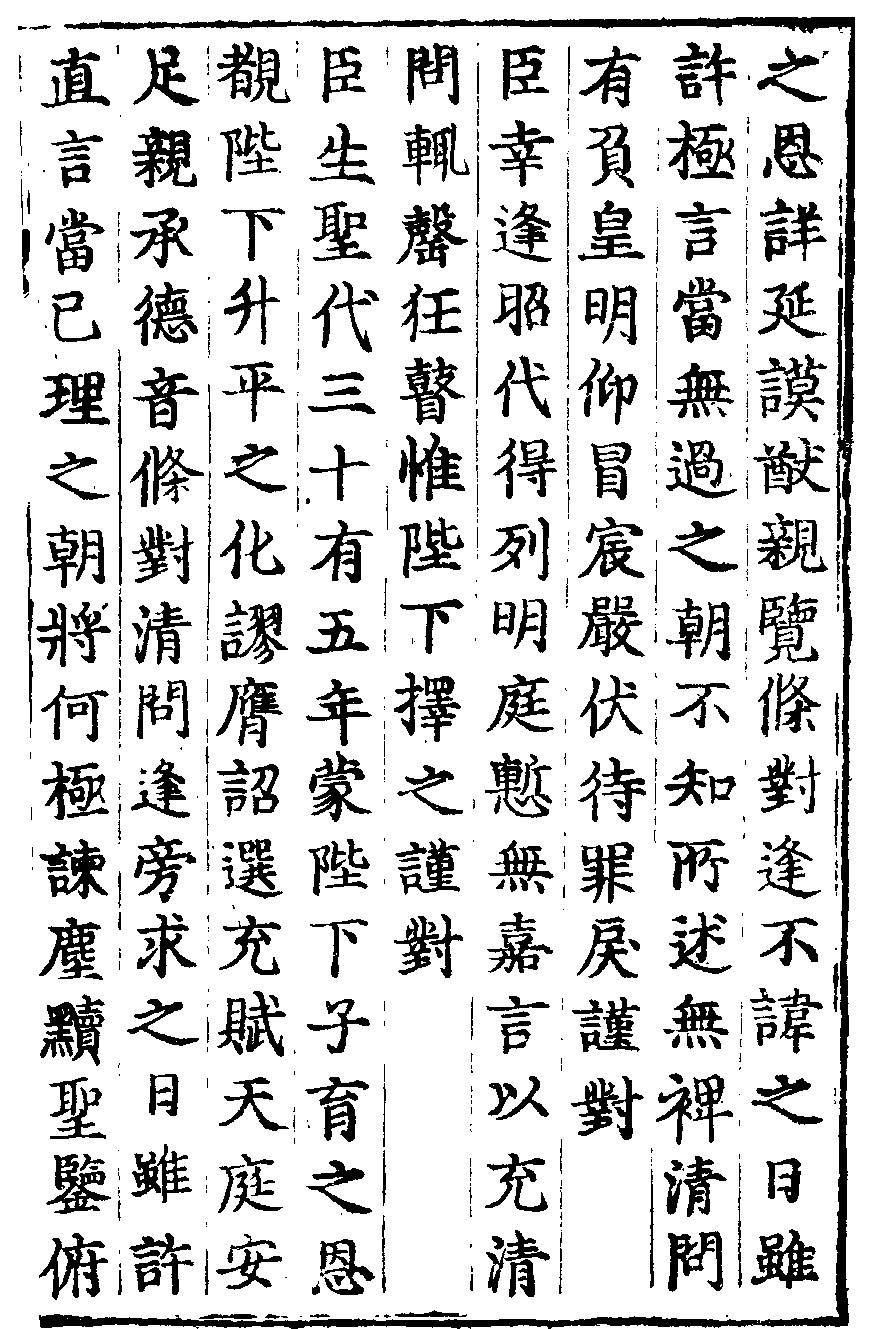 之恩詳延謨猷親覽條對逢不諱之日雖
許極言當無過之朝不知所述無裨清問
有負皇明仰冒宸嚴伏待罪戾謹對
臣幸逢昭代得列明庭慙無嘉言以充清
問輒罄狂瞽惟陛下擇之謹對
臣生聖代三十有五年蒙陛下子育之恩
覩陛下升平之化謬膺詔選充賦天庭安
足親承德音條對清問逢旁求之日雖許
直言當已理之朝將何極諫塵黷聖鑒俯